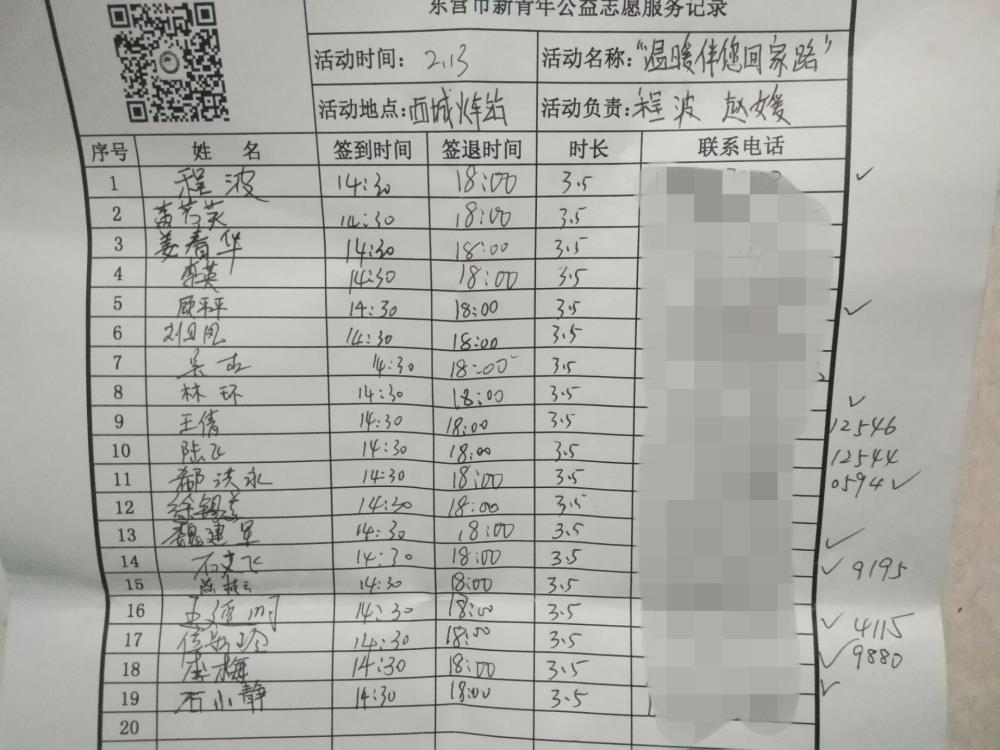 东营市新青年公益志愿服务记录
活动时间: 2.13 活动名称:"温暖伴您回家路"
活动地点:西城火车站 活动负责:程波 赵媛媛
序号 姓 名 签到时间 签退时间 时长 联系电话
1 程波 14:30 18:00 3.5 ✓
2 14:30 18:00 3.5
3 姜春华 14:30 18:00 3.5
4 李英 14:30 18:00 3.5
5 顾秤 14:30 18:00 3.5 ✓
6 14:30 18:00 3.5
7 14:30 18:00 3.5
8 林环 14:30 18:00 3.5 ✓
9 王倩 14:30 18:00 3.5 12546
10 陆飞 14:30 18:00 3.5 12544
11 郗洪永 14:30 18:00 3.5 0594✓
12 14:30 18:00 3.5
13 魏建军 14:30 18:00 3.5 ✓
14 石文飞 14:30 18:00 3.5 ✓ 9195
15 14:30 18:00 3.5
16 14:30 18:00 3.5 ✓ 4115
17 14:30 18:00 3.5 ✓ 9880
18 李梅 14:30 18:00 3.5 ✓
19 石小静 14:30 18:00 3.5
20